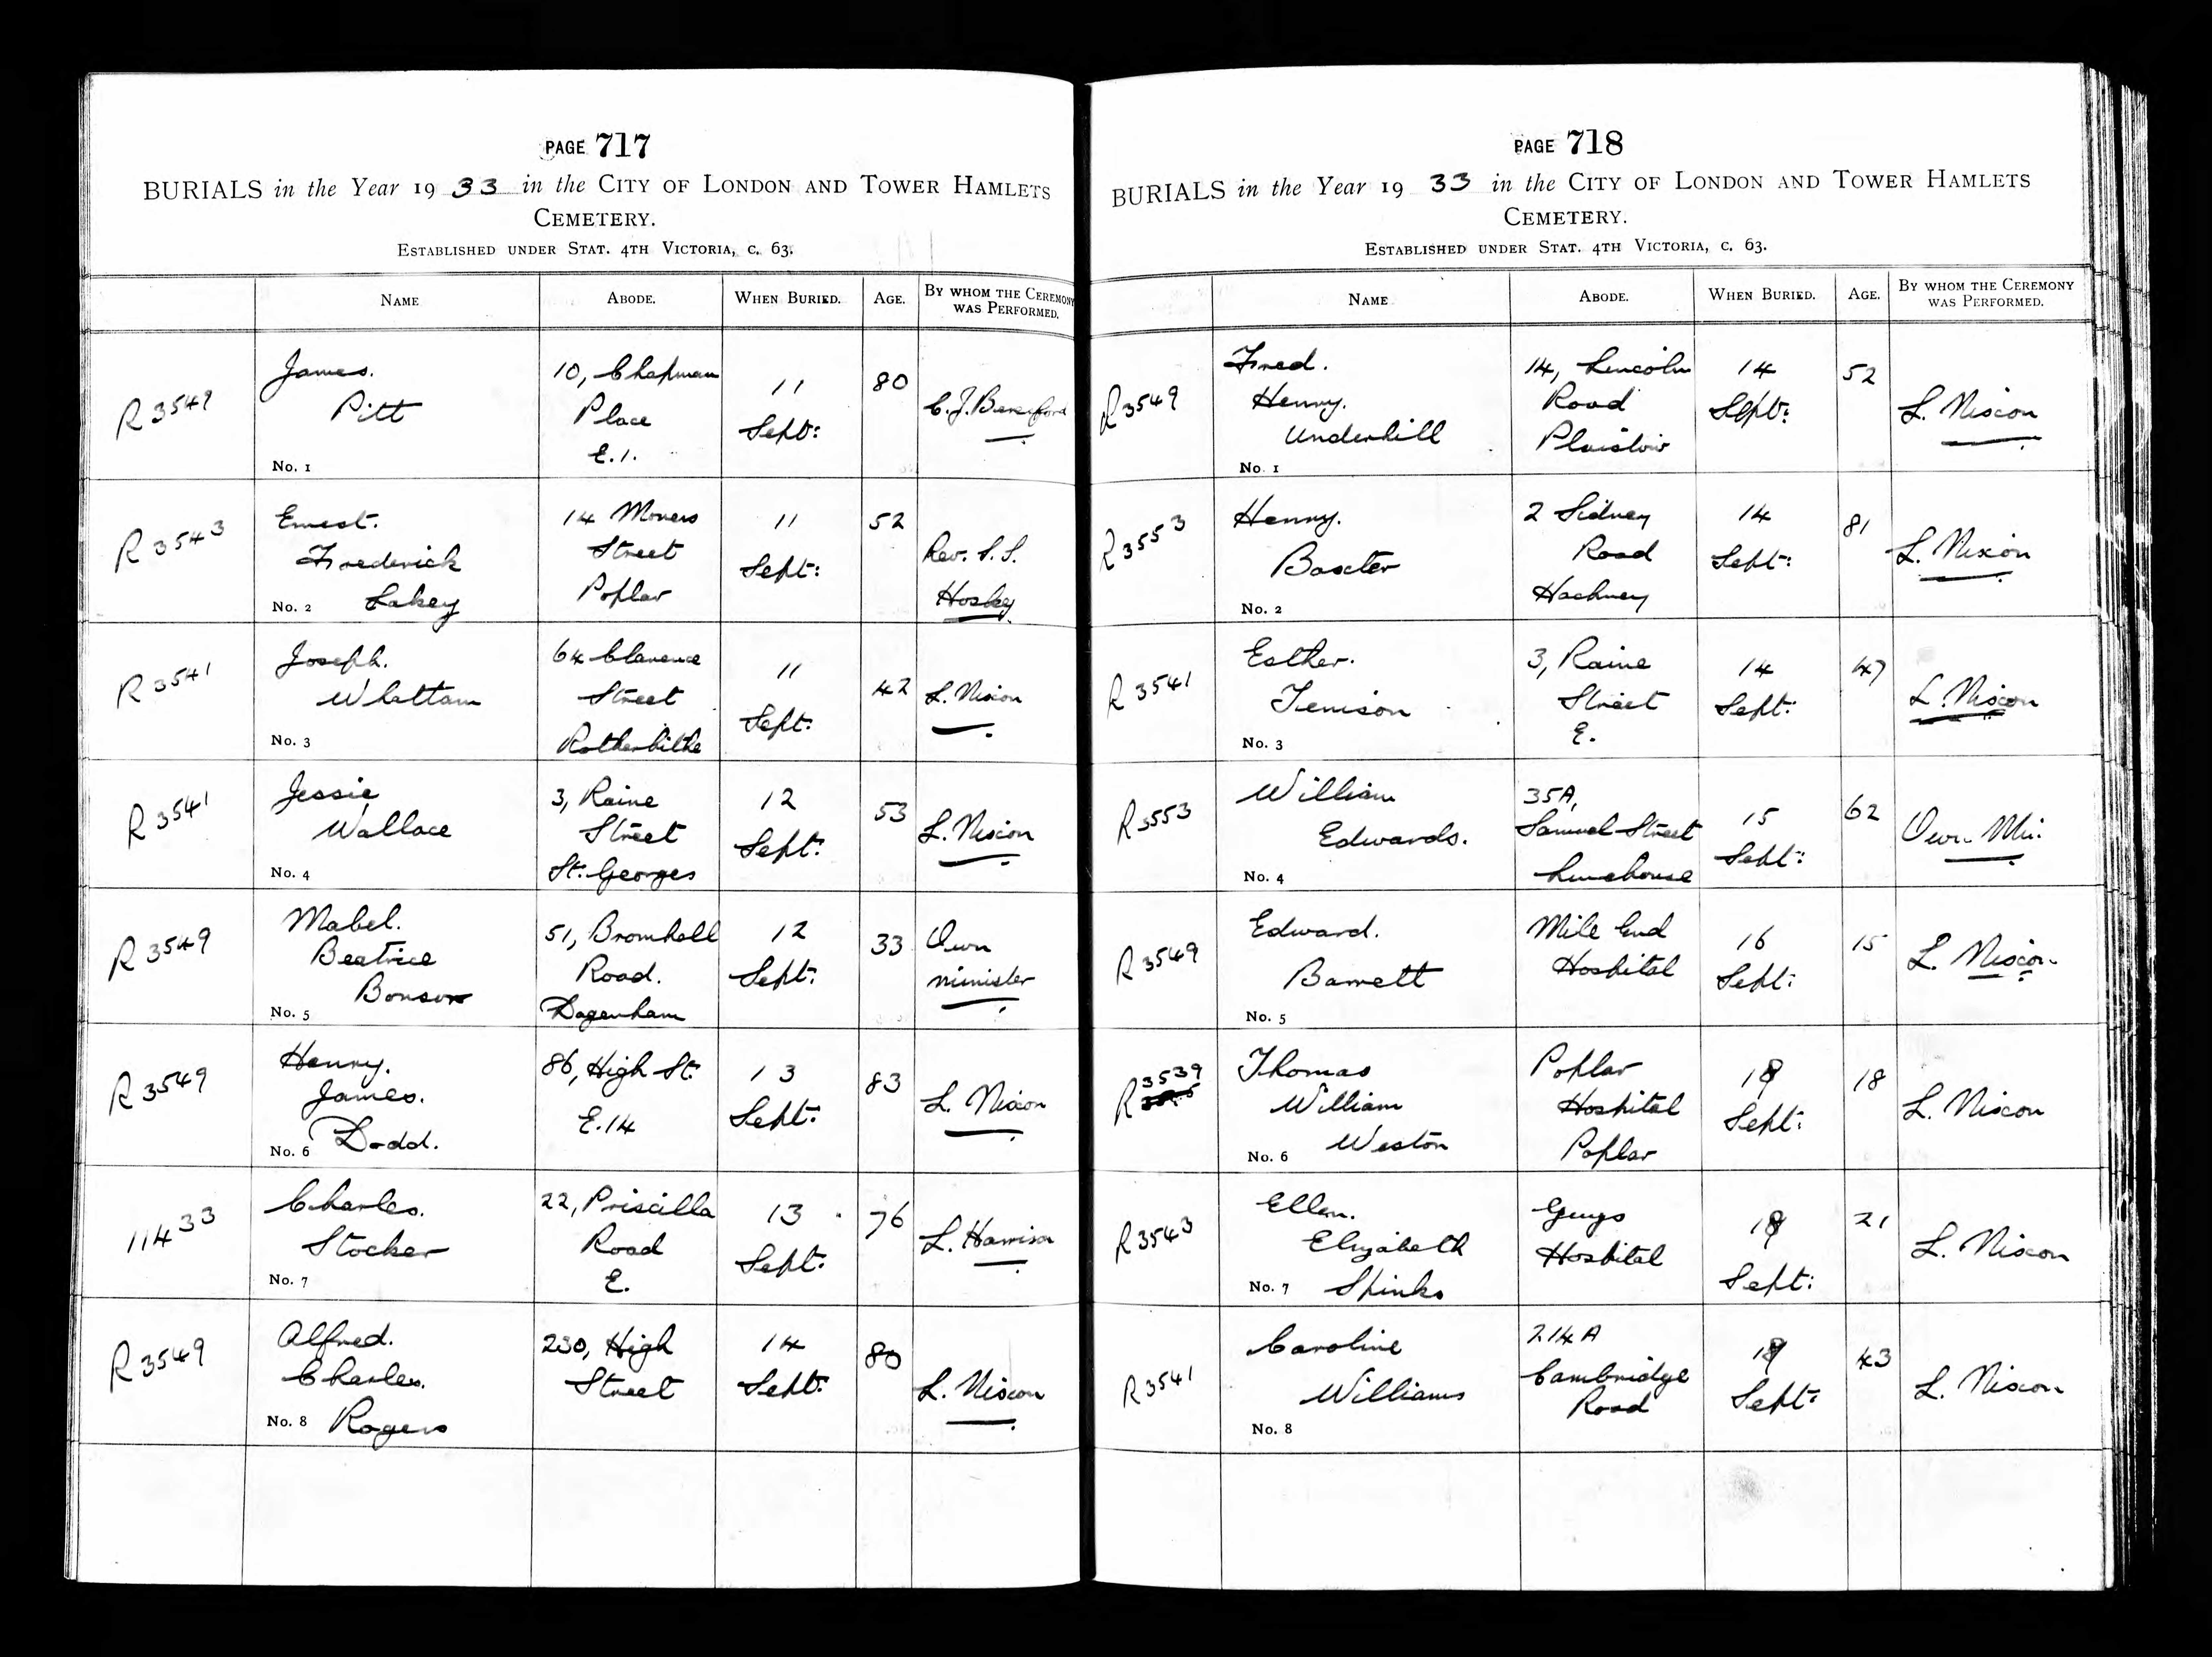 PAGE 717
BURIALS in the Year 19 33 in the CITY OF LONDON AND TOWER HAMLETS
CEMETERY.
ESTABLISHED UNDER STAT. 4TH VICTORIA, C. 63.
NAME ABODE. WHEN BURIED. AGE. BY WHOM THE CEREMONY
WAS PERFORMED.
R 3549 James. 10, Chapman 11 80 C. J. Beresford
Pitt Place Sept:
No. 1 E.1.
R 3543 Ernest. 14 Moners 11 52 Rev. S. S.
Frederick Street Sept: Hosley
No. 2 Lakey Poplar
R 3541 Joseph. 64 Clarence 11 42 L. Nixon
Whattam Street Sept:
No. 3 Rotherhithe
R 3541 Jessie 3, Raine 12 53 L. Nixon
Wallace Street Sept:
No. 4 St. Georges
R 3549 Mabel. 51, Bromhall 12 33 Own
Beatrice Road. Sept: minister
No. 5 Bonsor Dagenham
R 3549 Henry. 86, High St. 13 83 L. Nixon
James. E.14 Sept:
No. 6 Dodd.
11433 Charles. 22, Priscilla 13 76 L. Harrison
Stocker Road Sept:
No. 7 E.
R 3549 Alfred. 230, High 14 80 L. Nixon
Charles. Street Sept:
No. 8 Rogers
PAGE 718
BURIALS in the Year 19 33 in the CITY OF LONDON AND TOWER HAMLETS
CEMETERY.
ESTABLISHED UNDER STAT. 4TH VICTORIA, C. 63.
NAME ABODE. WHEN BURIED. AGE. BY WHOM THE CEREMONY
WAS PERFORMED.
R 3549 Fred. 14, Lincoln 14 52 L. Nixon
Henry. Road Sept:
Underhill Plaistow
No. 1
R 3553 Henry. 2 Sidney 14 81 L. Nixon
Baxter Road Sept:
No. 2 Hackney
R 3541 Esther. 3, Raine 14 47 L. Nixon
Jenison Street Sept:
No. 3 E.
R 3553 William 35A, 15 62 Own Min:
Edwards. Samuel Street Sept:
No. 4 Limehouse
R 3549 Edward. Mile End 16 15 L. Nixon
Barrett Hospital Sept:
No. 5
R 3539 Thomas Poplar 18 18 L. Nixon
William Hospital Sept:
No. 6 Weston Poplar
R 3543 Ellen. Guys 18 21 L. Nixon
Elizabeth Hospital Sept:
No. 7 Spinks
R 3541 Caroline 214A 18 43 L. Nixon
Williams Cambridge Sept:
No. 8 Road